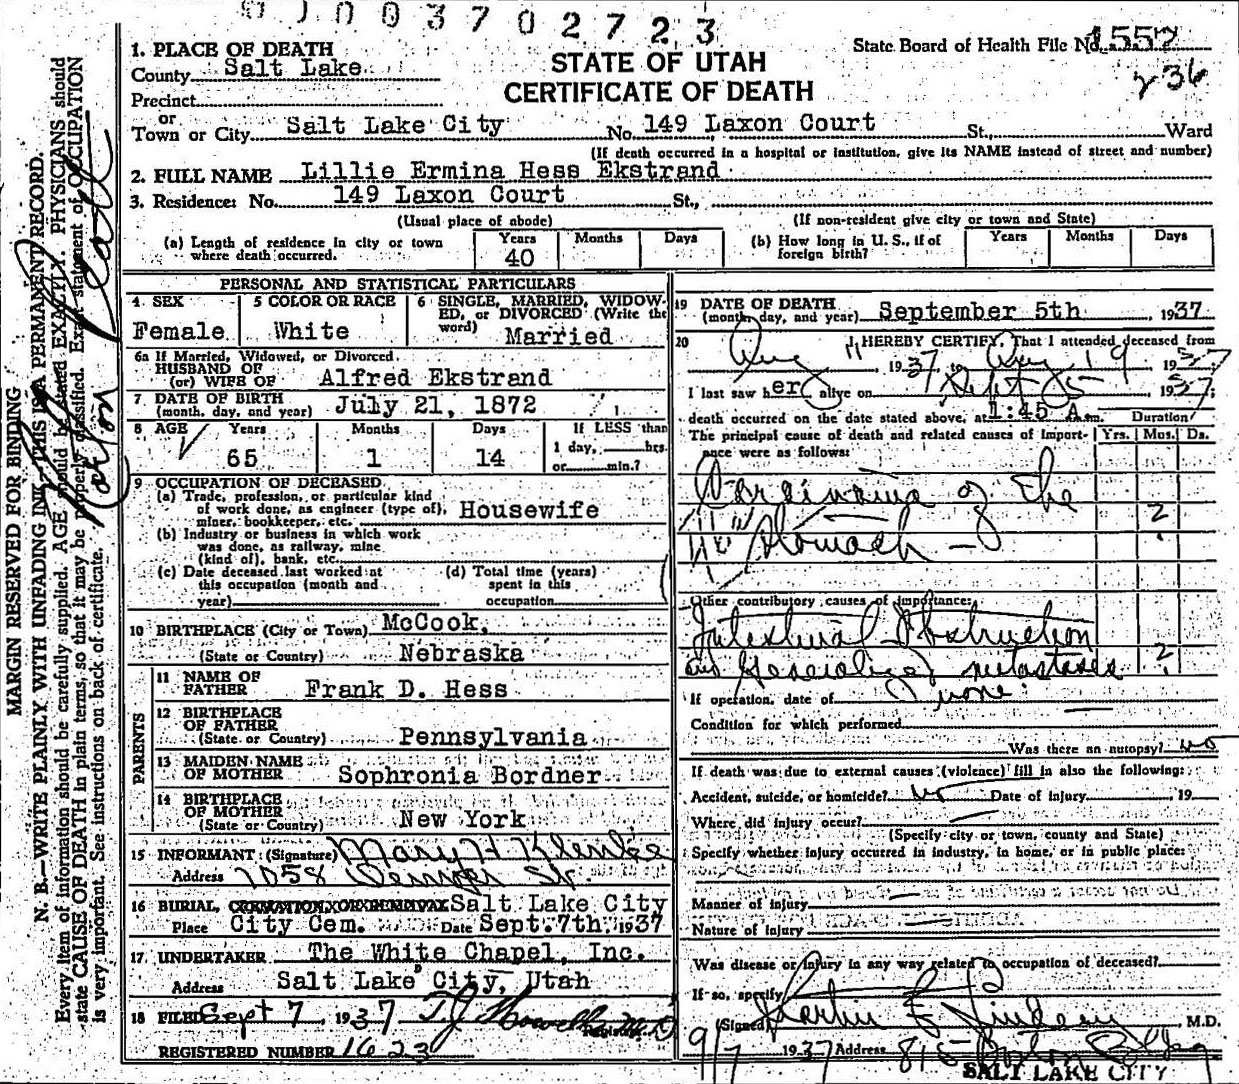 0 1 0 0 3 7 0 2 7 2 3
STATE OF UTAH
CERTIFICATE OF DEATH
State Board of Health File No. 1557
236
1. PLACE OF DEATH
County Salt Lake
Precinct
or
Town or City Salt Lake City No. 149 Laxon Court St., Ward
(If death occurred in a hospital or institution, give its NAME instead of street and number)
2. FULL NAME Lillie Ermina Hess Ekstrand
3. Residence: No. 149 Laxon Court St.,
(Usual place of abode) (If non-resident give city or town and State)
(a) Length of residence in city or town where death occurred. Years 40 Months Days
(b) How long in U. S., if of foreign birth? Years Months Days
PERSONAL AND STATISTICAL PARTICULARS
4 SEX Female
5 COLOR OR RACE White
6 SINGLE, MARRIED, WIDOWED, or DIVORCED (Write the word) Married
6a If Married, Widowed, or Divorced
HUSBAND OF
(or) WIFE OF Alfred Ekstrand
7 DATE OF BIRTH
(month, day, and year) July 21, 1872
8 AGE Years 65 Months 1 Days 14 If LESS than 1 day, hrs. or min.?
9 OCCUPATION OF DECEASED
(a) Trade, profession, or particular kind
of work done, as engineer (type of), Housewife
miner, bookkeeper, etc.
(b) Industry or business in which work
was done, as railway, mine
(kind of), bank, etc.
(c) Date deceased last worked at this occupation (month and year)
(d) Total time (years) spent in this occupation
10 BIRTHPLACE (City or Town) McCook,
(State or Country) Nebraska
PARENTS
11 NAME OF FATHER Frank D. Hess
12 BIRTHPLACE OF FATHER
(State or Country) Pennsylvania
13 MAIDEN NAME OF MOTHER Sophronia Bordner
14 BIRTHPLACE OF MOTHER
(State or Country) New York
15 INFORMANT: (Signature) Mary H Klenke
Address 1058 Denver St.
16 BURIAL, CREMATION, OR REMOVAL Salt Lake City
Place City Cem. Date Sept. 7th, 1937
17 UNDERTAKER The White Chapel, Inc.
Address Salt Lake City, Utah
18 FILED Sept 7, 1937 T.J. Howells M.D. Registrar
REGISTERED NUMBER 1623
19 DATE OF DEATH
(month, day, and year) September 5th, 1937
20 I HEREBY CERTIFY, That I attended deceased from
Aug 11 1937, to Aug 19 1937
I last saw her alive on Sept 5 1937;
death occurred on the date stated above, at 1:45 A.m.
Duration
The principal cause of death and related causes of importance were as follows: Yrs. Mos. Ds.
Carcinoma of the 2
Stomach
Other contributory causes of importance:
Intestinal Obstruction
and Generalized metastases 2
If operation, date of none.
Condition for which performed
Was there an autopsy? no
If death was due to external causes (violence) fill in also the following:
Accident, suicide, or homicide? no Date of injury 19
Where did injury occur?
(Specify city or town, county and State)
Specify whether injury occurred in industry, in home, or in public place:
Manner of injury
Nature of injury
Was disease or injury in any way related to occupation of deceased?
If so, specify
(Signed) M.D.
9/7 1937 Address 815 Boston Bldg
SALT LAKE CITY
MARGIN RESERVED FOR BINDING
N. B.—WRITE PLAINLY WITH UNFADING INK—THIS IS A PERMANENT RECORD.
Every item of information should be carefully supplied. AGE should be stated EXACTLY. PHYSICIANS should
state CAUSE OF DEATH in plain terms, so that it may be properly classified. Exact statement of OCCUPATION
is very important. See instructions on back of certificate.